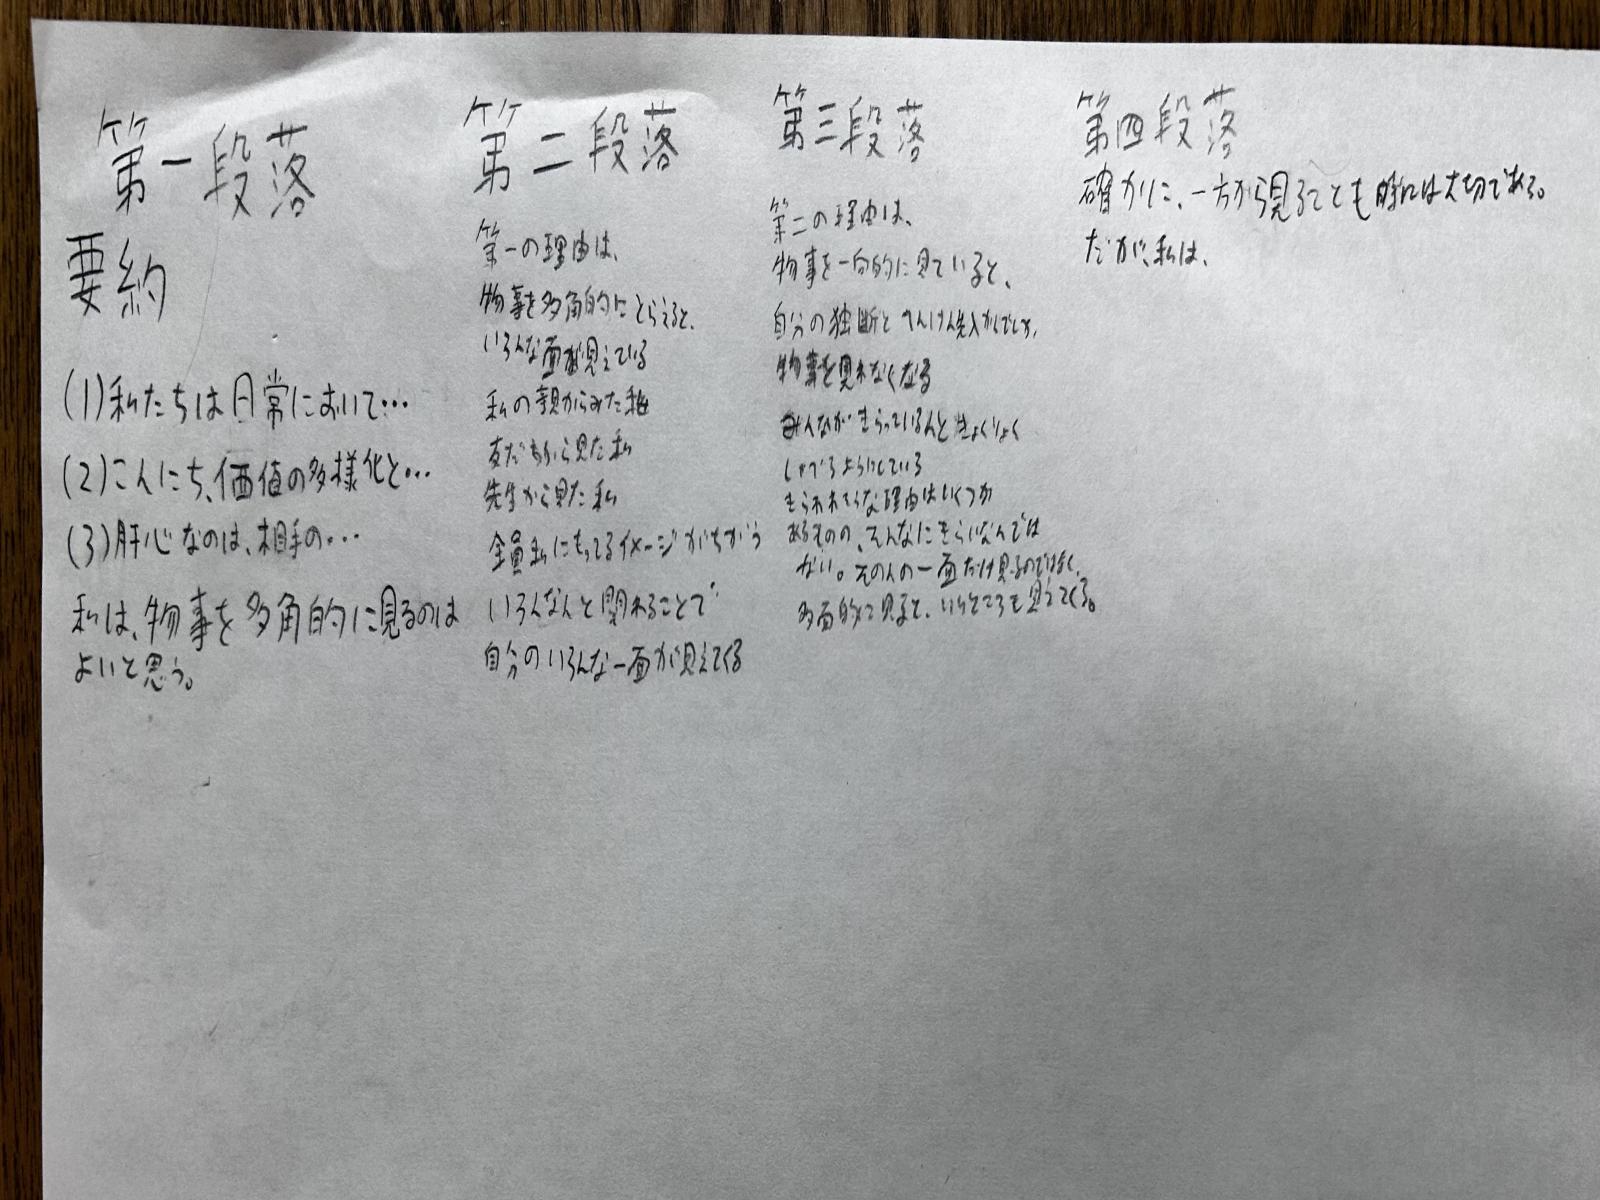 第一段落
要約
(1)私たちは日常において…
(2)こんにち、価値の多様化と…
(3)肝心なのは、相手の…
私は、物事を多角的に見るのは
よいと思う。
第二段落
第一の理由は、
物事を多角的にとらえると、
いろんな面が見えている
私の親からみた私
友だちから見た私
先生から見た私
全員私にもってるイメージがちがう
いろんな人と関わることで
自分のいろんな一面が見えてくる
第三段落
第二の理由は、
物事を一向的に見ていると、
自分の独断とへんけん先入かんでしか、
物事を見れなくなる
みんながきらっている人ときょくりょく
しゃべるようにしている
きらわれてらな理由はいくつか
あるものの、そんなにきらいなんでは
ない。その人の一面だけ見るのではなく、
多面的に見ると、いいところも見えてくる。
第四段落
確かに、一方から見ることも時には大切である。
だが、私は、